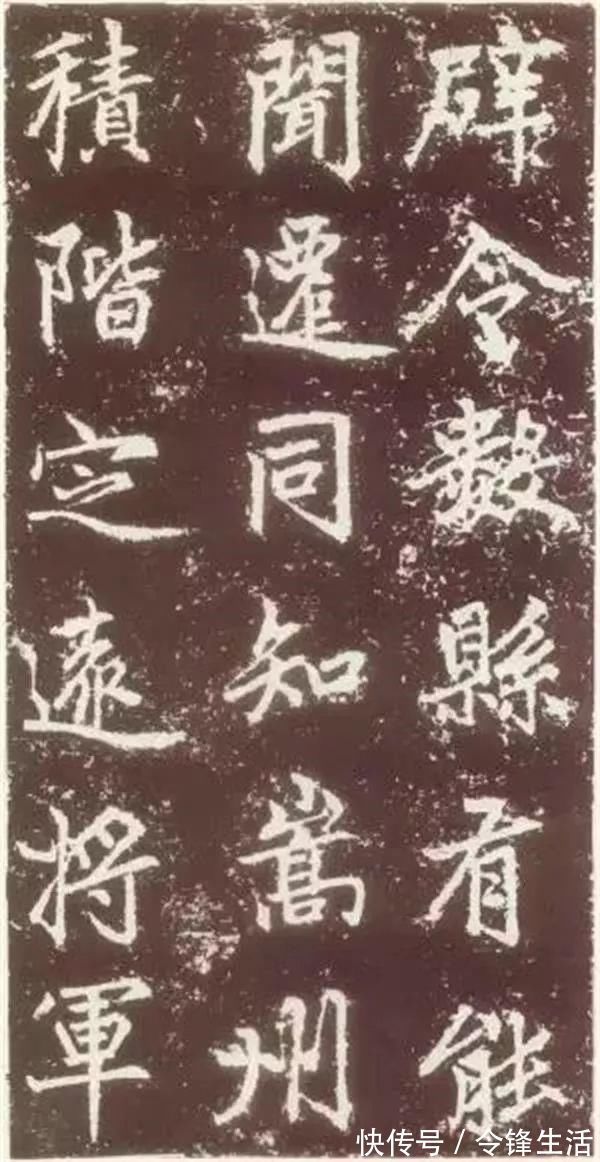 辟令數縣有能
聞遷同知嵩州
積階定遠將軍
快传号 / 令锋生活